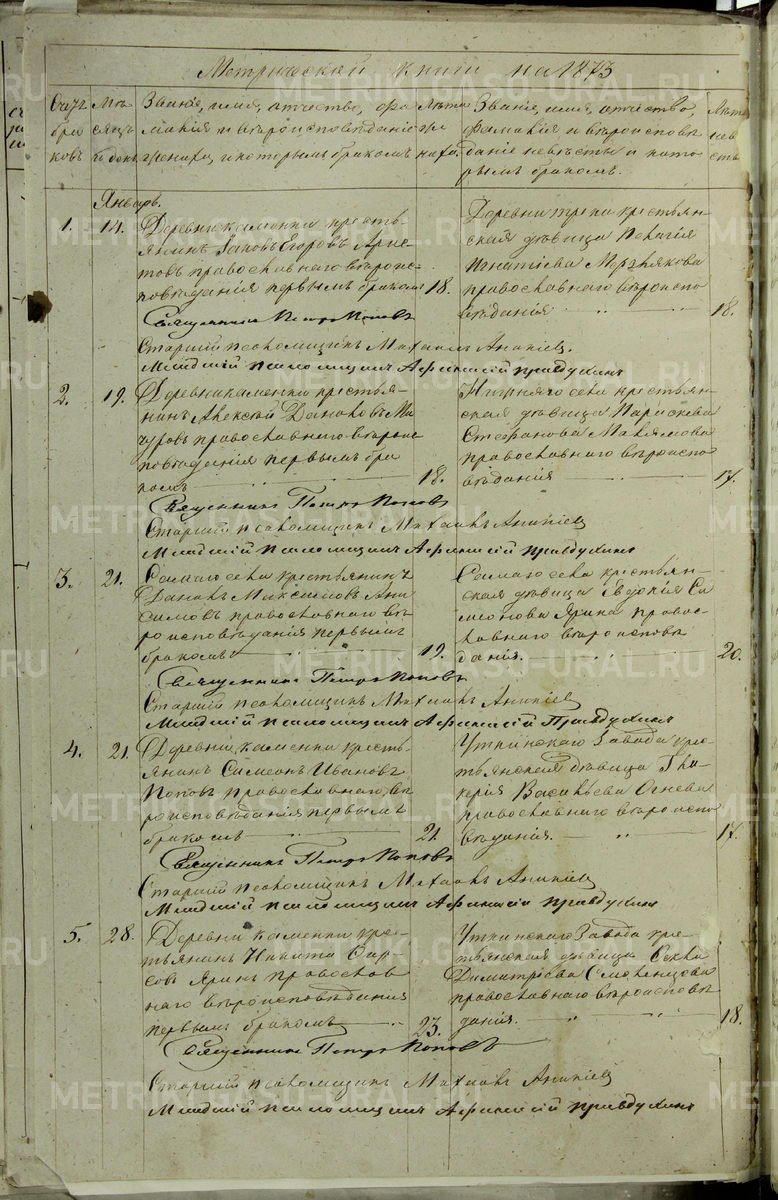 Метрической книги на 1873
Счетъ браковъ
Мѣсяцъ и день
Званіе, имя, отчество, фамилія и вѣроисповѣданіе жениха, и которымъ бракомъ
Лѣта жениха
Званіе, имя, отчество, фамилія и вѣроисповѣданіе невѣсты и которымъ бракомъ.
Лѣта невѣсты
Январь.
1. 14.
Деревни каменки кресть-
янинъ Егоровъ
православнаго вѣроис-
повѣданія первымъ бракомъ 18.
Деревни крестьян-
ская дѣвица Пелагія
Игнатіева Мерзлякова
православнаго вѣроиспо
вѣданія 18.
Священникъ Петръ Поповъ
Старшій псаломщикъ Михаилъ Аникіевъ.
Младшій псаломщикъ Афанасій Правдухинъ
2. 19.
Деревни каменки крестья-
нинъ Алексѣй Даниловъ Ма
чуровъ православнаго вѣроис
повѣданія первымъ бра
комъ 18.
села крестьян-
ская дѣвица Параскева
Стефанова
православнаго вѣроиспо
вѣданія 17.
Священникъ Петръ Поповъ
Старшій псаломщикъ Михаилъ Аникіевъ
Младшій псаломщикъ Афанасій Правдухинъ
3. 21.
Самаго села крестьянинъ
Данилъ Максимовъ Ани
симовъ православнаго вѣ
роисповѣданія первымъ
бракомъ 19.
Самаго села крестьян-
ская дѣвица Евдокія Си
меонова Ярина правос-
лавнаго вѣроисповѣ
данія. 20.
Священникъ Петръ Поповъ
Старшій псаломщикъ Михаилъ Аникіевъ
Младшій псаломщикъ Афанасій Правдухинъ
4. 21.
Деревни каменки кресть-
янинъ Симеонъ Ивановъ
Поповъ православнаго вѣ
роисповѣданія первымъ
бракомъ 21
Уткинскаго Завода крес-
тьянская дѣвица Гли
керія Васильева Огнева
православнаго вѣроиспо
вѣданія. 17.
Священникъ Петръ Поповъ
Старшій псаломщикъ Михаилъ Аникіевъ
Младшій псаломщикъ Афанасій Правдухинъ
5. 28.
Деревни каменки крес-
тьянинъ Никита
Яринъ православ
наго вѣроисповѣданія
первымъ бракомъ 23.
Уткинскаго Завода кре-
тьянская дѣвица
Димитріева Смоленцова
православнаго вѣроисповѣ
данія. 18.
Священникъ Петръ Поповъ
Старшій псаломщикъ Михаилъ Аникіевъ
Младшій псаломщикъ Афанасій Правдухинъ
METRIKI.GASO-URAL.RU